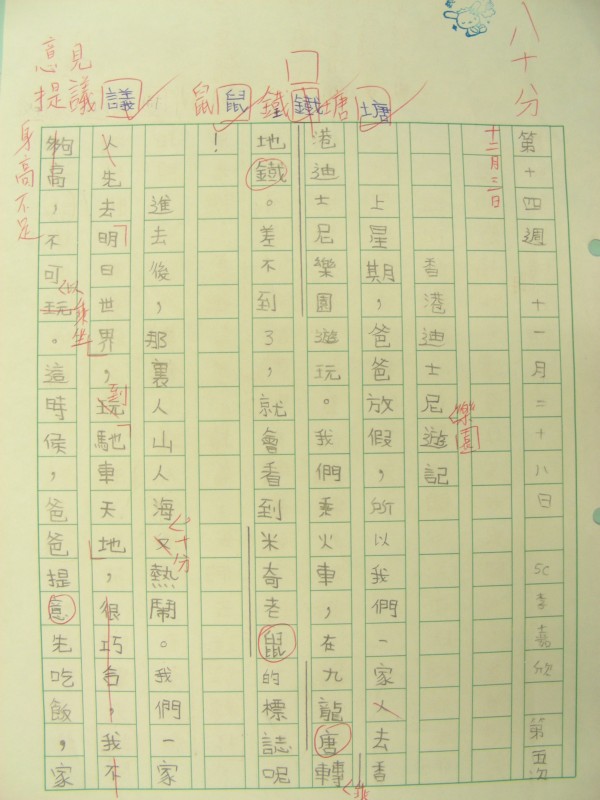 八十分
第十四週 十一月二十八日 5C 李嘉欣 第五次
十二月二日
香港迪士尼遊記
樂園
上星期，爸爸放假，所以我們一家人去香
港迪士尼樂園遊玩。我們乘火車，在九龍唐轉
乘
地鐵。差不到了，就會看到米奇老鼠的標誌呢
！
進去後，那裏人山人海又熱鬧。我們一家
十分
人先去明日世界，玩馳車天地，很巧合，我不
到
夠高，不可玩。這時候，爸爸提意先吃飯，家
以乘坐
意見
提議 議
鼠 鼠
鐵 鐵
塘 塘
身高不足